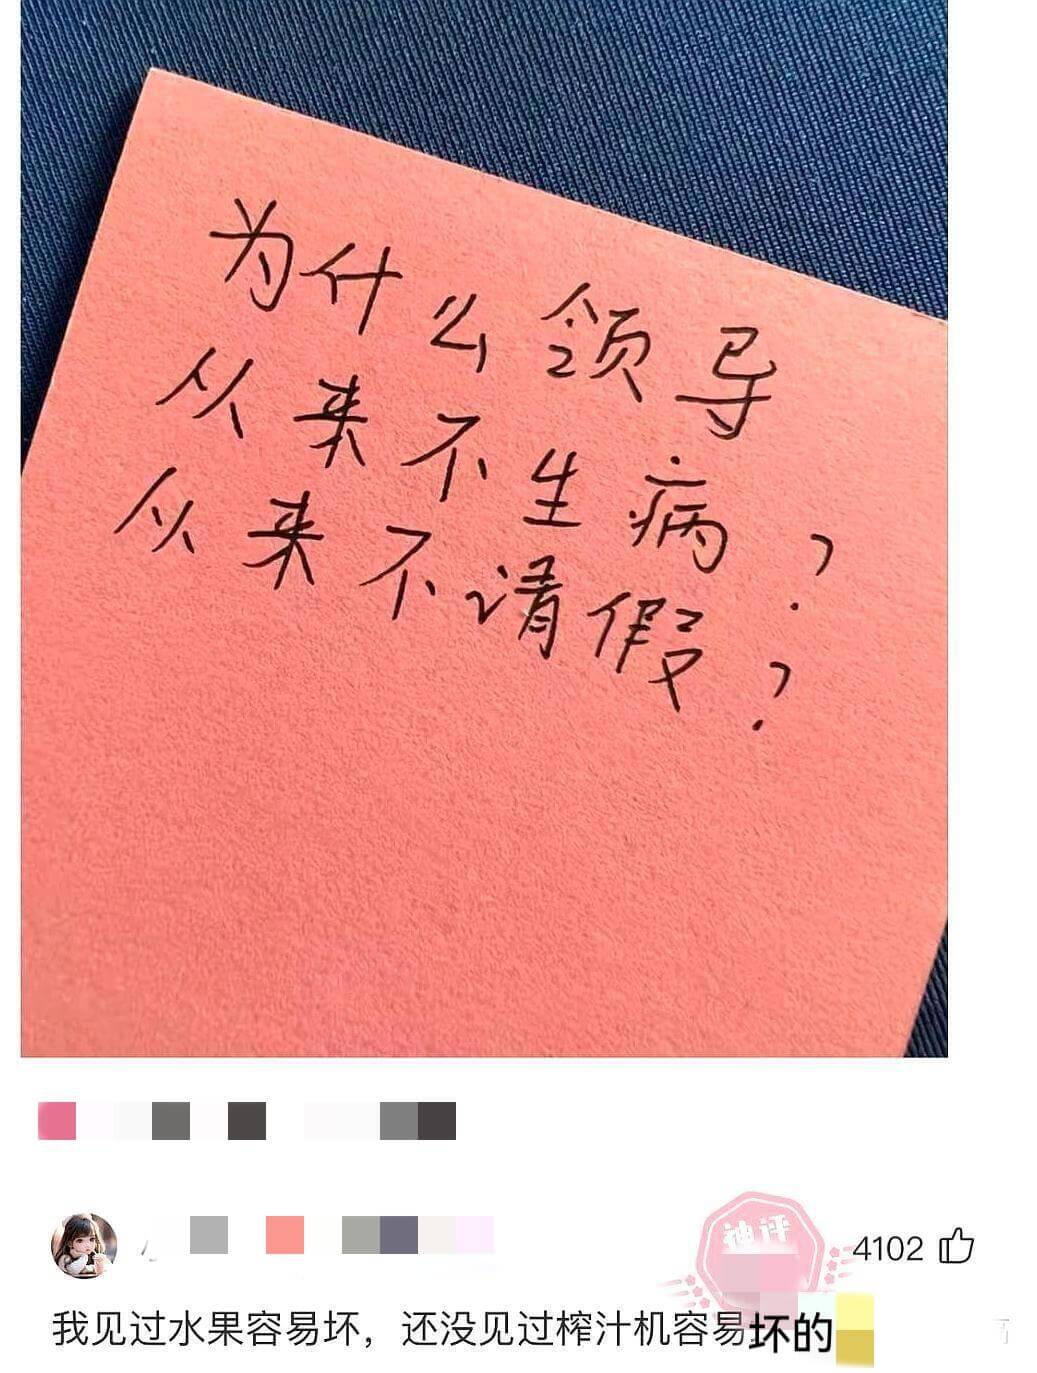 为什么领导
从来不生病?
从来不请假?
神评
4102
我见过水果容易坏，还没见过榨汁机容易坏的